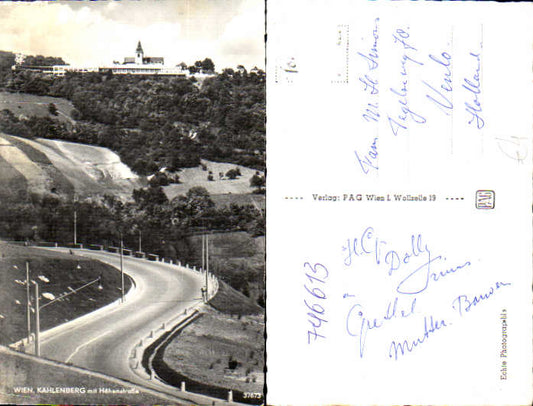 WIEN, KAHLENBERG mit Höhenstraße
37673
Fam. M. H. Simons
Tegelseweg
Venlo
Holland
Verlag: PAG Wien I. Wollzeile 19
PAG
Echte Photographie
746613
Dolly
Gretel
Mutter